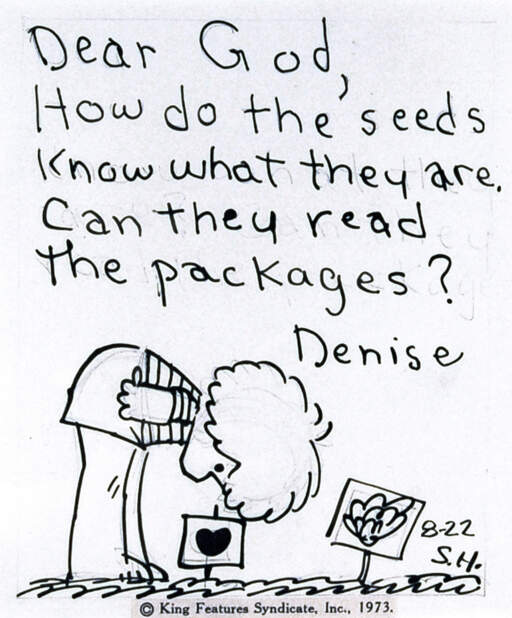 Dear God,
How do the seeds
Know what they are.
Can they read
the packages?
Denise
8-22
S.H.
© King Features Syndicate, Inc., 1973.